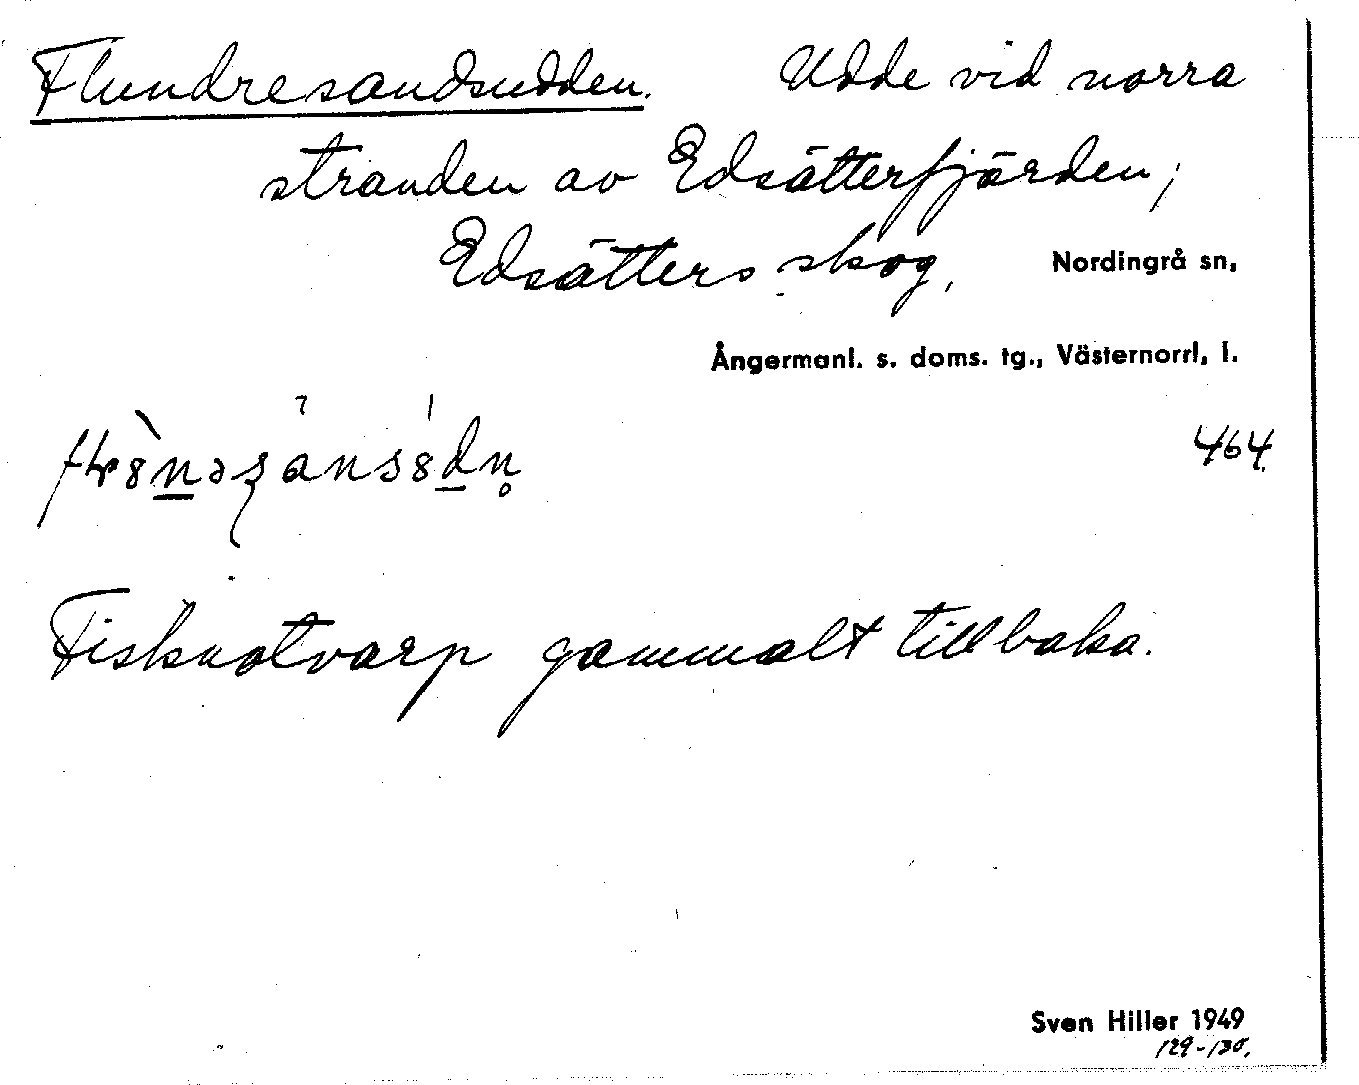 Flundresandsudden. Udde vid norra
stranden av Edsätterfjärden,
Edsätters skog, Nordingrå sn,
Ångermanl. s. doms. tg., Västernorrl, l.
464.
Fisknotvarp gammalt tillbaka.
Sven Hiller 1949
129-130.